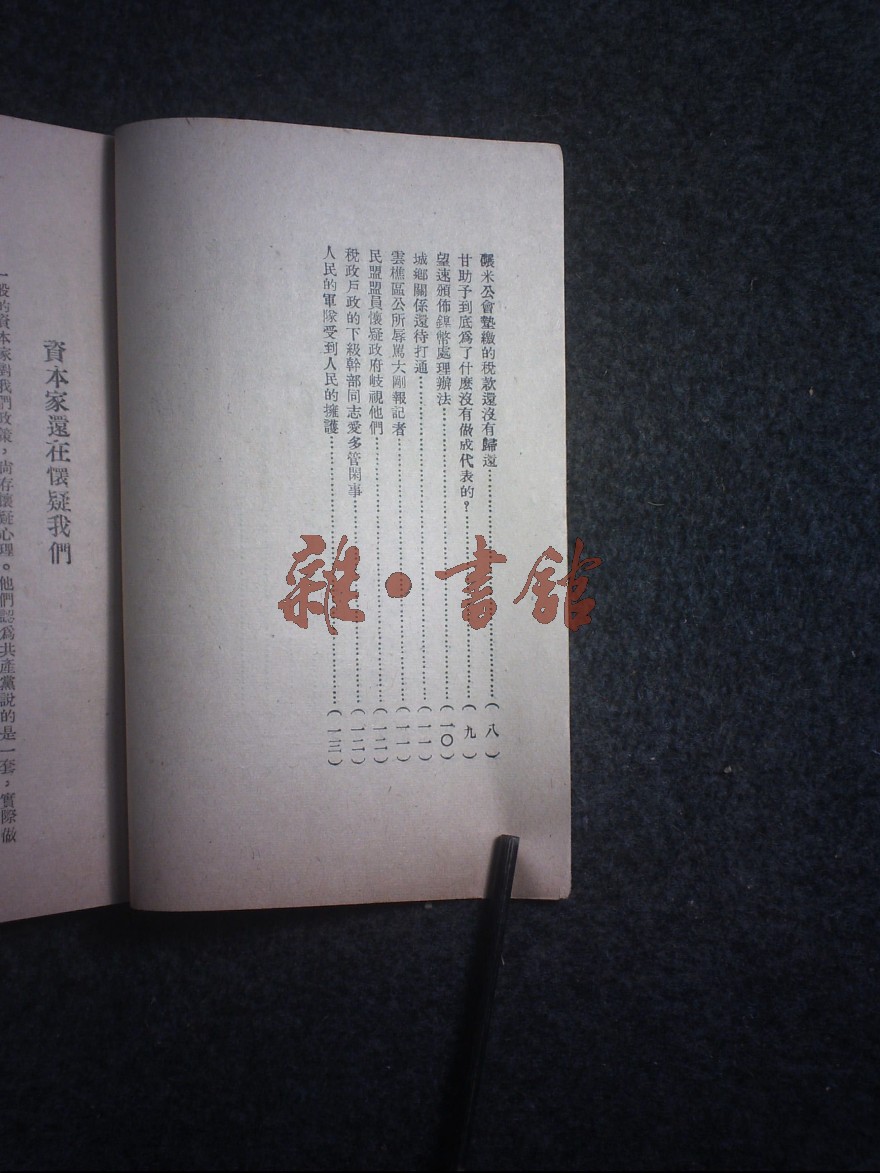 碾米公會墊繳的稅款還沒有歸還……(八)
甘助子到底爲了什麽沒有做成代表的?……(九)
望速頒佈鎳幣處理辦法……(一〇)
城鄉關係還待打通……(一一)
雲樵區公所辱罵大剛報記者……(一一)
民盟盟員懷疑政府歧視他們……(一二)
稅政戶政的下級幹部同志愛多管閑事……(一二)
人民的軍隊受到人民的擁護……(一三)
資本家還在懷疑我們
一般的資本家對我們政策,尚存懷疑心理。他們認爲共產黨說的是一套,實際做
雜·書館